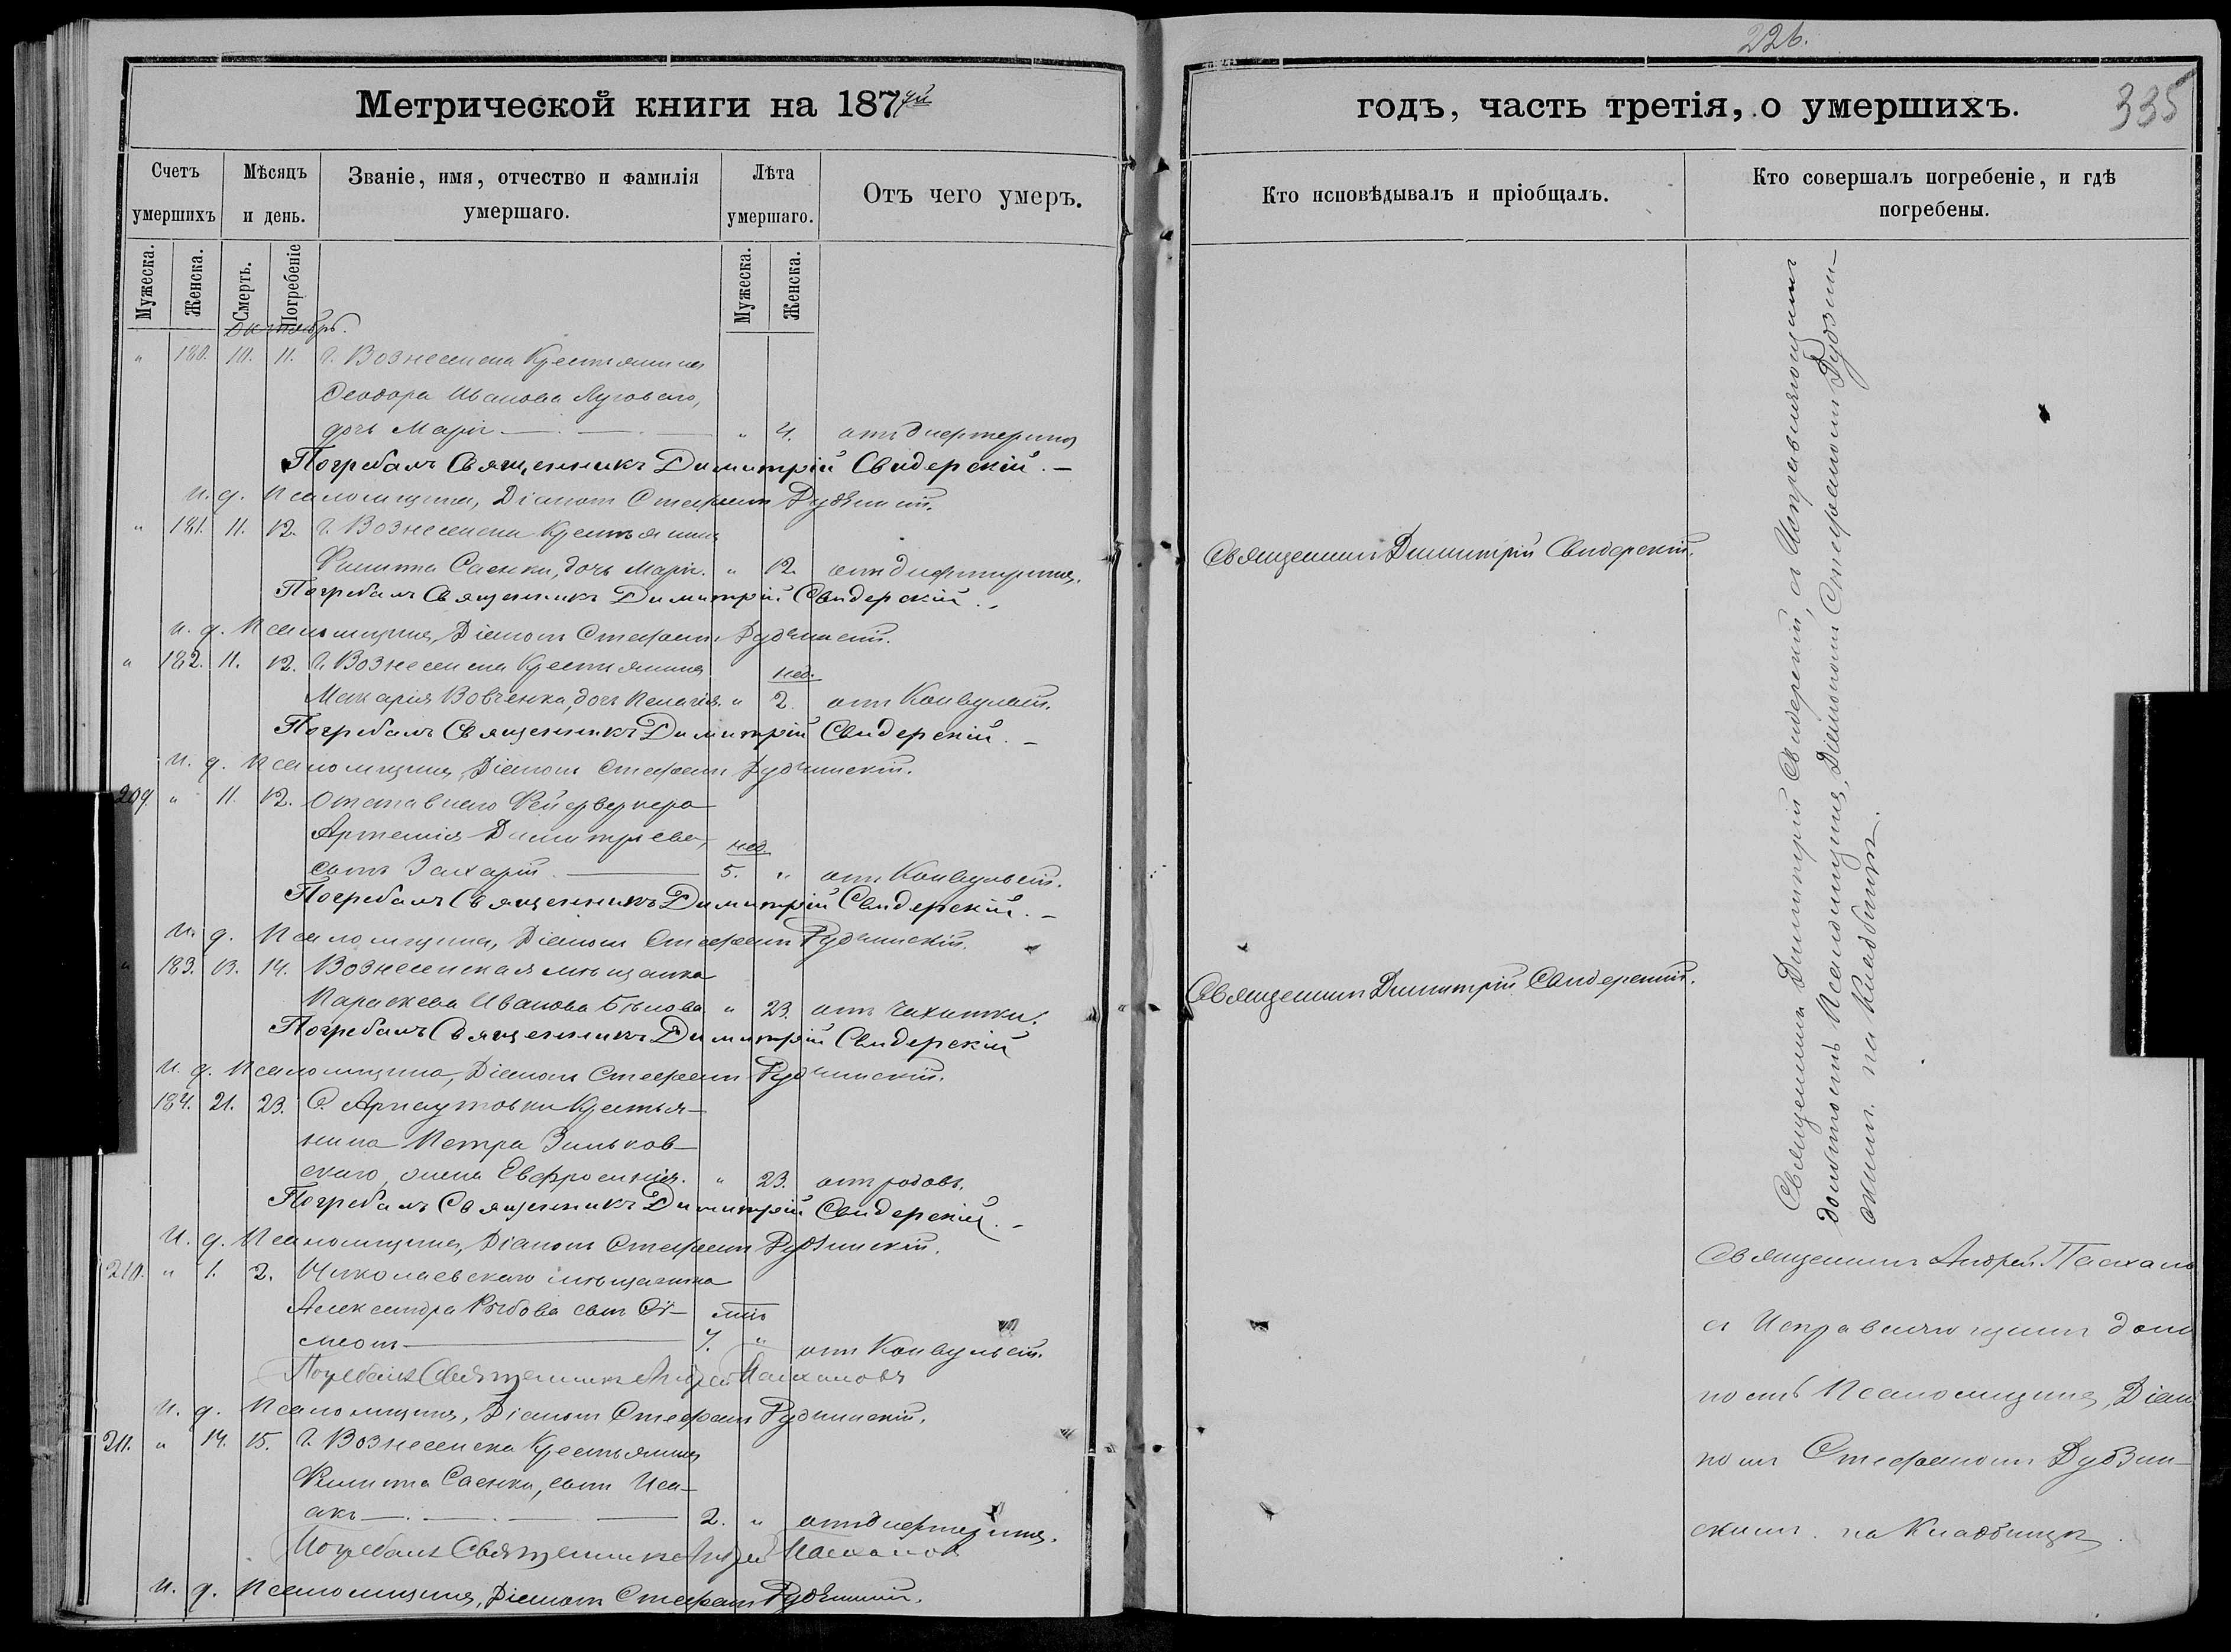 Метрической книги на 187
Счетъ умершихъ
Мѣсяцъ и день.
Званіе, имя, отчество и фамилія умершаго.
Лѣта умершаго.
Отъ чего умеръ.
Мужеска.
Женска.
Смерть.
Погребеніе
Мужеска.
Женска.
Октябрь.
" 180. 10. 11. г. Вознесенска Крестьянина
Феодора Иванова Лугового,
дочь Марія " 4. отъ дифтерита
Погребалъ Священникъ Димитрій Свидерскій. –
И. д. Псаломщика, Діаконъ Стефанъ Рудзинскій.
" 181. 11. 12. г. Вознесенска Крестьянина
Филиппа Саенки, дочь Марія. " 12. отъ дифтерита.
Погребалъ Священникъ Димитрій Свидерскій. –
И. д. Псаломщика, Діаконъ Стефанъ Рудзинскій.
" 182. 11. 12. г. Вознесенска Крестьянина нед.
Макарія Вовченка, дочь Пелагія. " 2. отъ Конвульсій.
Погребалъ Священникъ Димитрій Свидерскій. –
И. д. Псаломщика, Діаконъ Стефанъ Рудзинскій.
209 " 11. 12. Отставнаго Фейерверкера
Артемія Димитріева, нед.
сынъ Захарій. 5. " отъ Конвульсій.
Погребалъ Священникъ Димитрій Свидерскій. –
И. д. Псаломщика, Діаконъ Стефанъ Рудзинскій.
" 183. 13. 14. Вознесенская мѣщанка
Параскева Иванова Бѣлова " 23. отъ Чахотки.
Погребалъ Священникъ Димитрій Свидерскій
И. д. Псаломщика, Діаконъ Стефанъ Рудзинскій.
184. 21. 23. С. Арнаутовки Крестья-
нина Петра Зильков-
скаго, жена Евфросинія. " 23. отъ родовъ.
Погребалъ Священникъ Димитрій Свидерскій. –
И. д. Псаломщика, Діаконъ Стефанъ Рудзинскій.
210. " 1. 2. Николаевскаго мѣщанина
Александра сынъ
7. " отъ Конвульсій.
Погребалъ Священникъ Андрей Пасхаловъ
И. д. Псаломщика, Діаконъ Стефанъ Рудзинскій.
211. " 14. 15. г. Вознесенска Крестьянина
Филиппа Саенки, сынъ Иса-
акъ 2. " отъ дифтерита.
Погребалъ Священникъ Андрей Пасхаловъ
И. д. Псаломщика, Діаконъ Стефанъ Рудзинскій.
226.
335
годъ, часть третія, о умершихъ.
Кто исповѣдывалъ и пріобщалъ.
Кто совершалъ погребеніе, и гдѣ погребены.
Священникъ Димитрій Свидерскій.
Священникъ Димитрій Свидерскій.
Священникъ Димитрій Свидерскій, съ Исправляющимъ
должность Псаломщика, Діакономъ Стефаномъ Рудзин-
скимъ. на Кладбищѣ.
Священникъ Андрей Пасхалов
съ Исправляющимъ долж
ность Псаломщика, Діако
номъ Стефаномъ Рудзин-
скимъ. на Кладбищѣ.